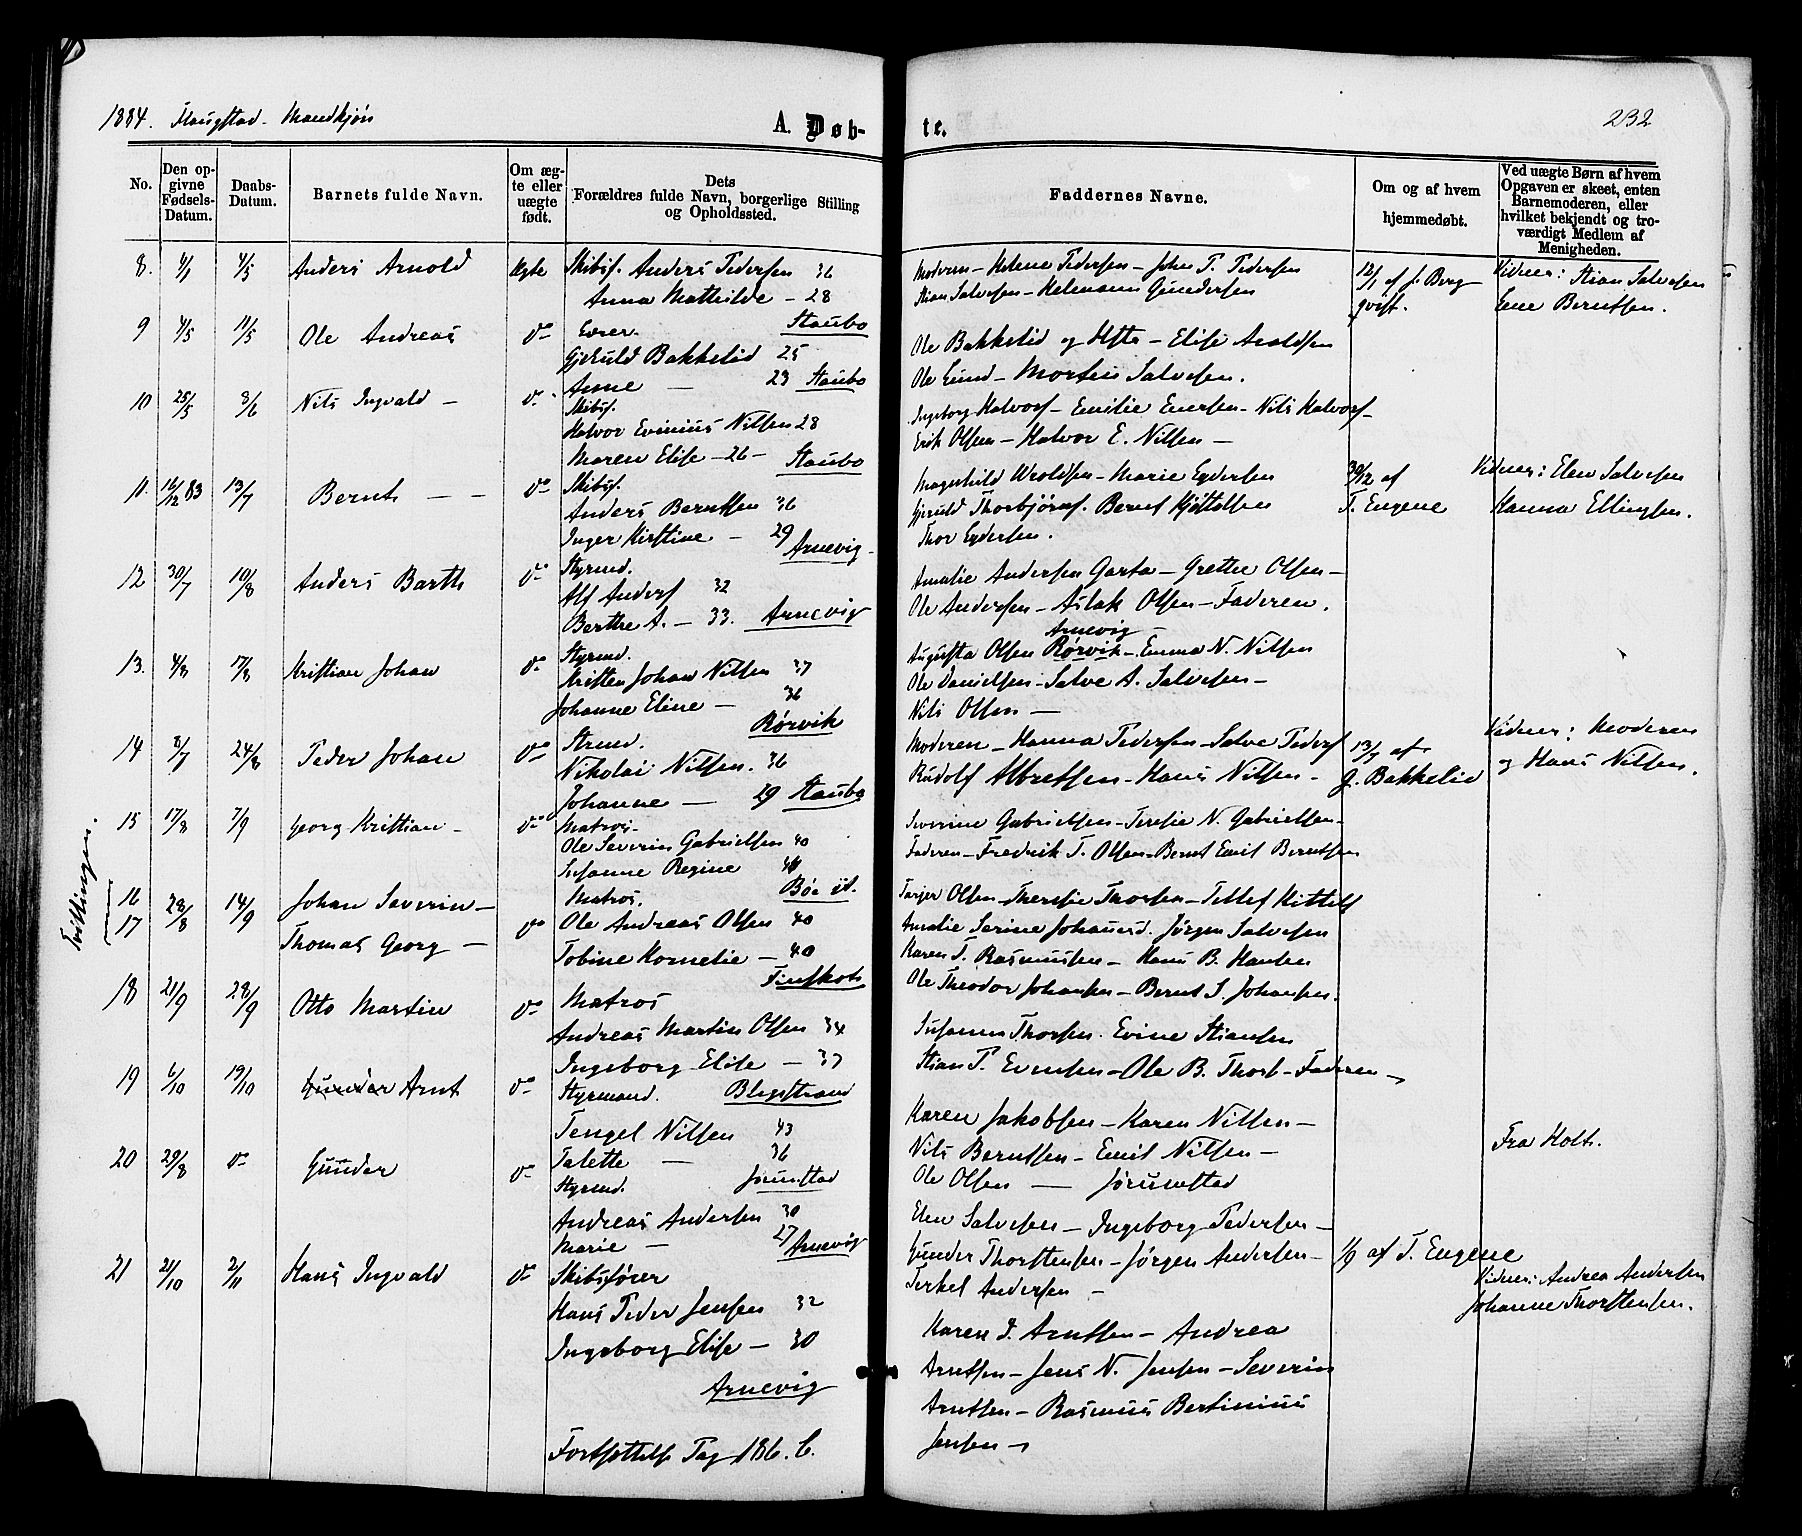 1884. Flangstad - Mandkjøn
A. Døb-
te.
232
No.
Den opgivne Fødsels-Datum.
Daabs-Datum.
Barnets fulde Navn.
Om ægte eller uægte født.
Dets Forældres fulde Navn, borgerlige Stilling og Opholdssted.
Faddernes Navne.
Om og af hvem hjemmedøbt.
Ved uægte Børn af hvem Opgaven er skeet, enten Barnemoderen, eller hvilket bekjendt og troværdigt Medlem af Menigheden.
8. 4/1 4/5 Anders Arnold Ægte Skibsf. Anders Pedersen 36
Anna Mathilde - 28
Staubo
Moderen - Helene Pedersen - John P. Pedersen
Stian Salvesen - Helemann Gundersen
12/1 af J. Berg
qvist.
Vidner: Stian Salvesen
Ene Berntsen.
9 4/5 11/5 Ole Andreas do
Gjeruld Bakkelid 25
Anne - 23 Staubo
Ole Bakkelid og Hstr - Elise Aroldsen
Ole Lund - Morten Salvesen.
10 25/5 8/6 Nils Ingvald - do Skibsf.
Halvor Evinius Nilsen 28
Maren Elise - 26 - Staubo
Ingeborg Halvors - Emilie Enersen - Nils Halvors
Erik Olsen - Halvor E. Nilsen -
11. 16/12 83 13/7 Bernt - - do Skibsf.
Anders Berntsen 36
Inger Kirstine - 29
Arnevig -
Magnhild Wroldsen - Marie Eydersen
Gjeruld Thorbjørns. Bernt Kjøttolsen
Thor Eydersen.
30/12 af
T. Eugene
Vidner: Elen Salvesen
Hanna Ellingsen.
12 30/7 10/8 Anders Barth do Styrmd.
Alf Anders 32
Berthe A. - 33. Arnevig
Amalie Andersen Garta - Grethe Olsen -
Ole Andersen - Aslak Olsen - Faderen.
13. 4/8 17/8 Kristian Johan do Styrmd.
Kristen Johan Nilsen 37
Johanne Eline - 36
Rørvik
Arnevig
Augusta Olsen Rørvik - Emma N. Nilsen
Ole Danielsen - Salve A. Salvesen -
Nils Olsen -
14 8/7 24/8 Peder Johan do Strmd.
Nikolai Nilsen. 36
Johanne - 29 Staubo
Moderen - Hanna Pedersen - Salve Peders
Rudolf Albretsen - Hans Nilsen -
13/7 af
G. Bakkelid
Vidner: Moderen
og Hans Nilsen.
15 17/8 7/9 Georg Kristian - do Matros.
Ole Severin Gabrielsen 40
Susanne Regine
Bøe
Severine Gabrielsen - Teresie N. Gabrielsen -
Faderen - Fredrik T. Olsen - Bernt Emil Berntsen
Tvillinger.
16 28/8 14/9 Johan Severin - Matros.
17 Thomas Georg - do Ole Andreas Olsen 40
Tobine Kornelie - 40
Tarjer Olsen - Theresie Thorsen - Tellef Kittels
Amalie Serine Johannesd. Jørgen Salvesen
Karen T. Rasmussen - Hans B. Hansen
Ole Theodor Johansen - Bernt S. Johansen.
18 21/9 28/9 Otto Martin do Matros
Andreas Martin Olsen 34
Ingeborg Elise - 37
Blegestrand
Susanne Thorsen. Evine Stiansen
Stian T. Evensen - Ole B. Thors - Faderen -
19 6/10 19/10 Gunder Arnt do Styrmand.
Tengel Nilsen 43
Talette - 36
Jørunstad
Karen Jakobsen - Karen Nilsen -
Nils Berntsen - Emil Nilsen -
Ole Olsen - Jørunstad
20 29/8 do Gunder do Styrmd.
Andreas Andersen 30
Marie - 27 Arnevig
Elen Salvesen - Ingeborg Pedersen -
Gunder Thorstensen - Jørgen Andersen -
Terkel Andersen -
1/9 af T. Eugene
Fra Holt.
Vidner: Andrea Andersen
Johanne Thorstensen.
21 21/10 2/11 Hans Ingvald do Skibsfører
Hans Peder Jensen 32
Ingeborg Elise - 30
Arnevig
Karen J. Arntsen - Andrea
Arntsen - Jens N. Jensen - Severin
Arntsen - Rasmus Bertinius
Jensen -
Fortsættelse Pag 186. b.